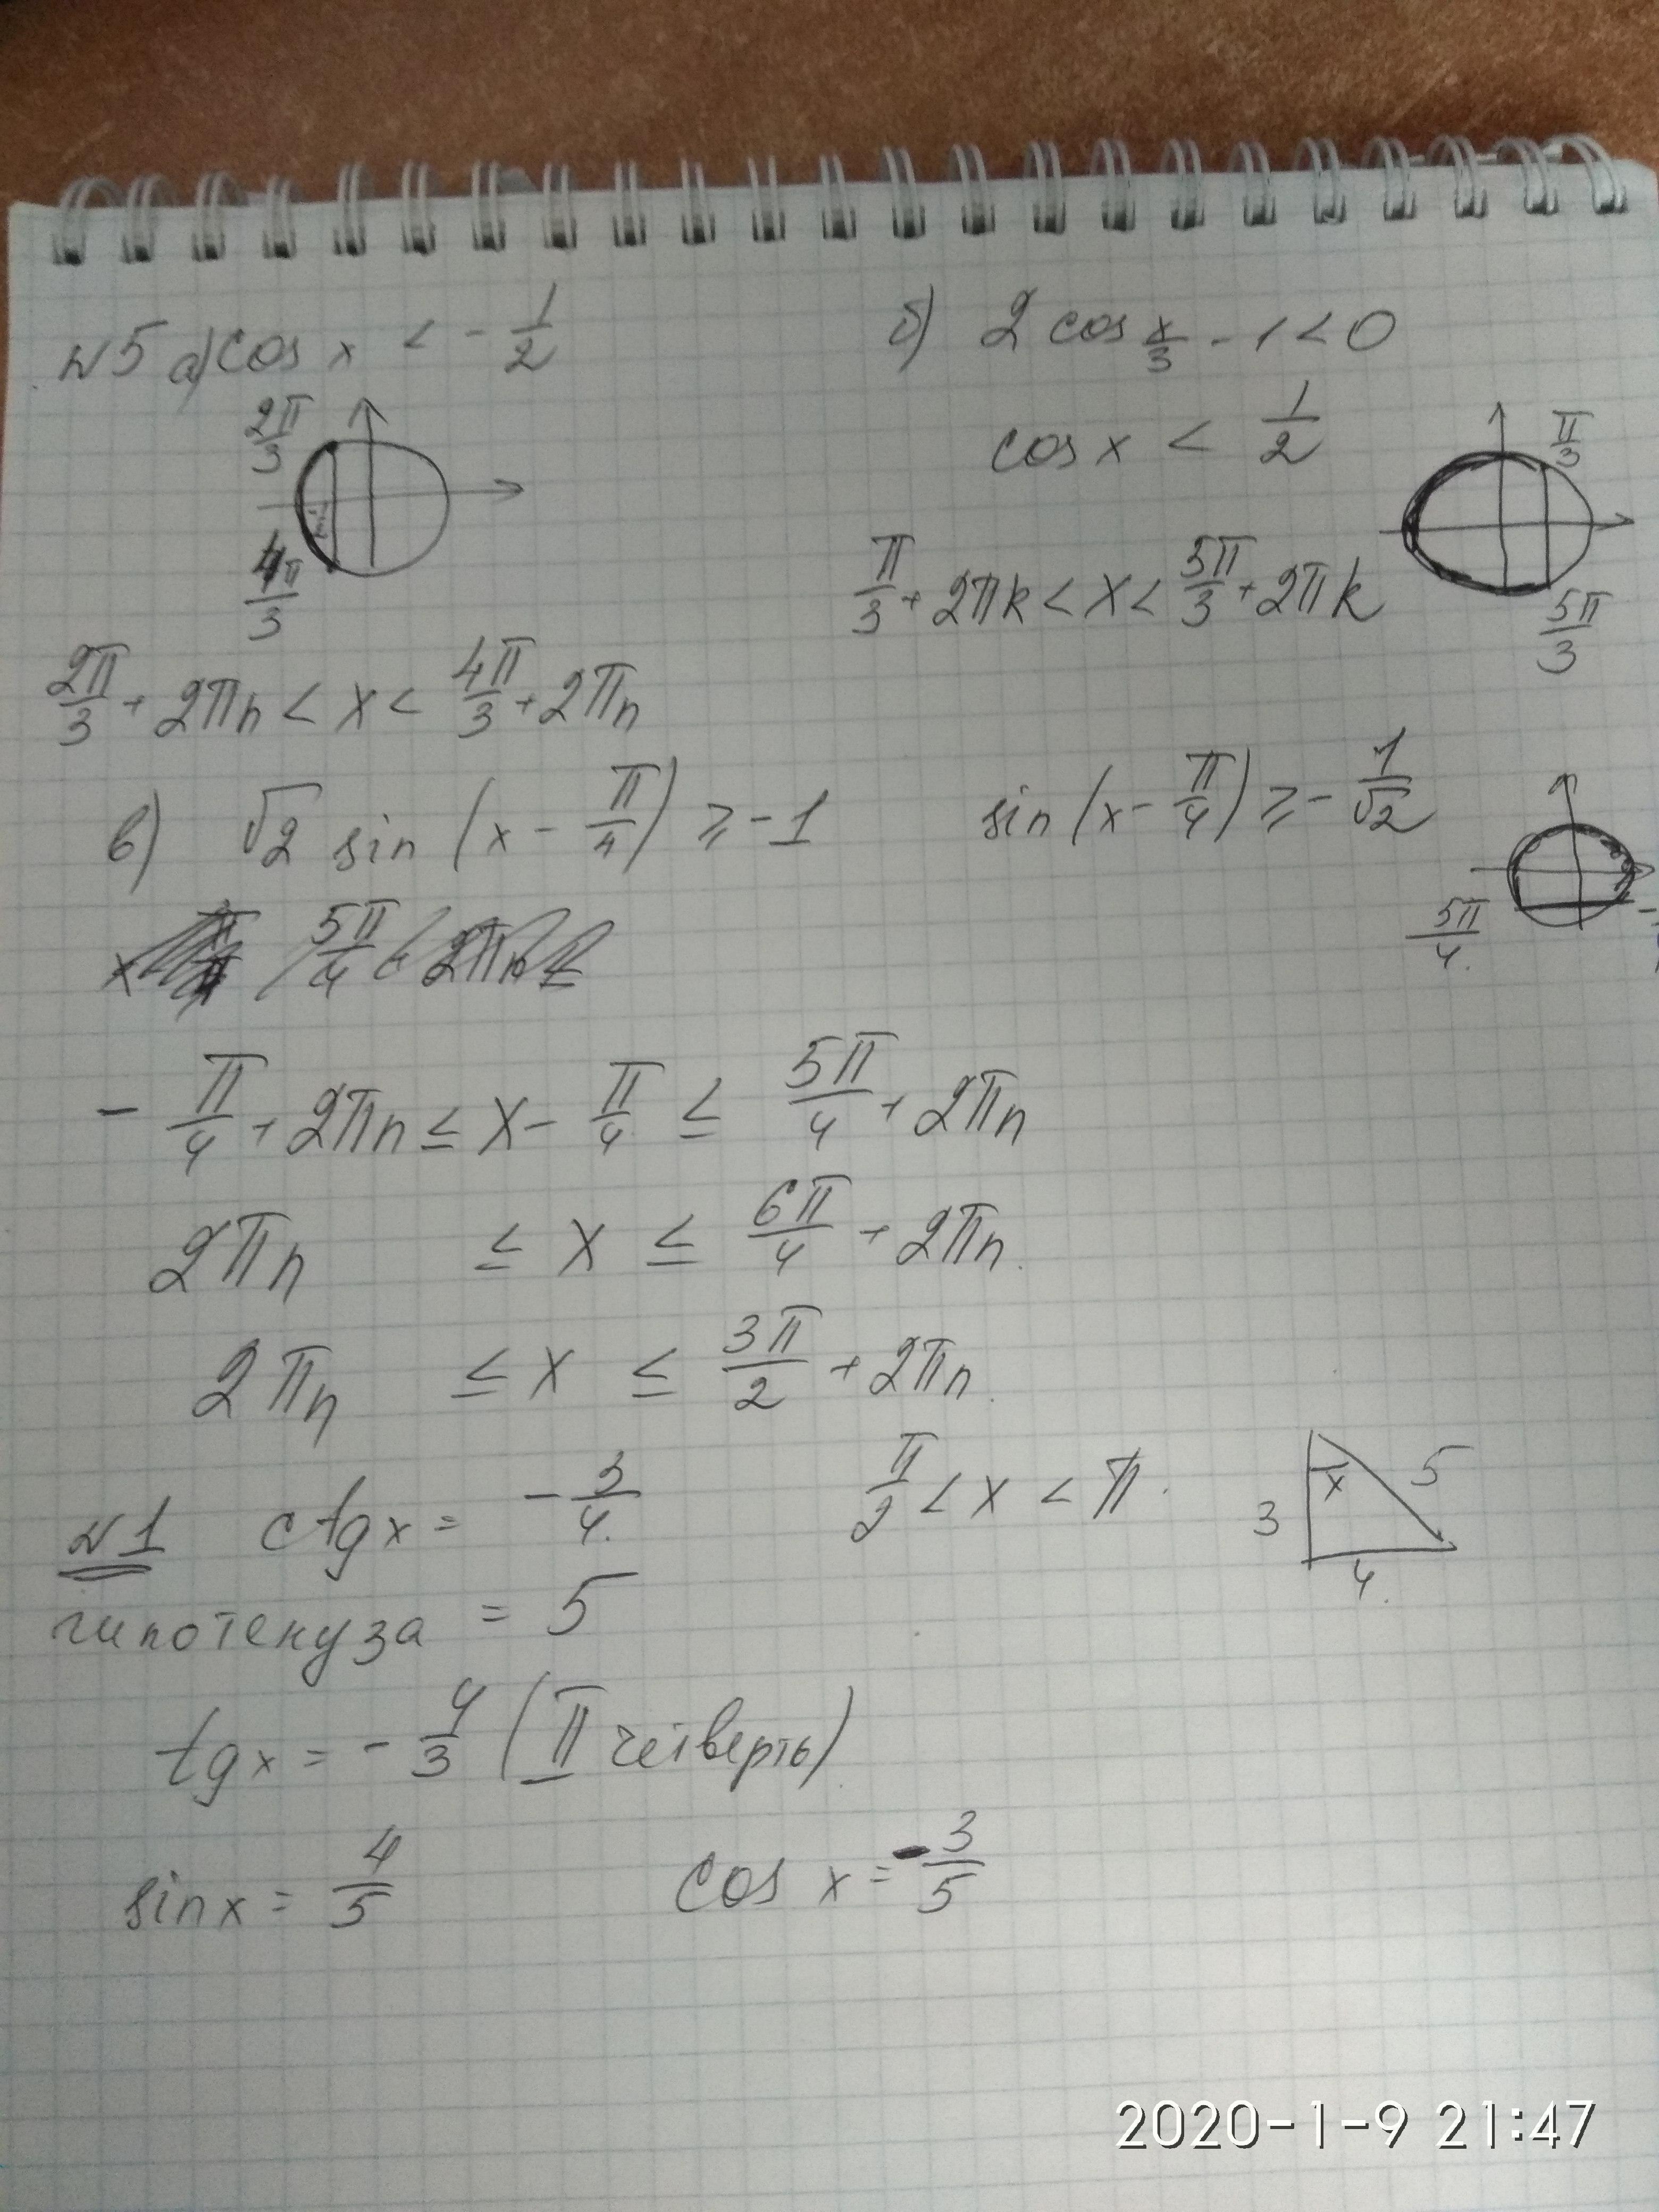 №5 а) cos x < - 1/2
2π/3
4π/3
2π/3 + 2πn < x < 4π/3 + 2πn
б) 2 cos x/3 - 1 < 0
cos x < 1/2
π/3
5π/3
π/3 + 2πk < x < 5π/3 + 2πk
в) √2 sin (x - π/4) ≥ -1 sin (x - π/4) ≥ - 1/√2
5π/4
5π/4 + 2πn ≤
- π/4 + 2πn ≤ x - π/4 ≤ 5π/4 + 2πn
2πn ≤ x ≤ 6π/4 + 2πn
2πn ≤ x ≤ 3π/2 + 2πn
№1 ctg x = - 3/4 π/2 < x < π
x 5
3
4
гипотенуза = 5
tg x = - 4/3 (II четверть)
sin x = 4/5 cos x = - 3/5
2020-1-9 21:47